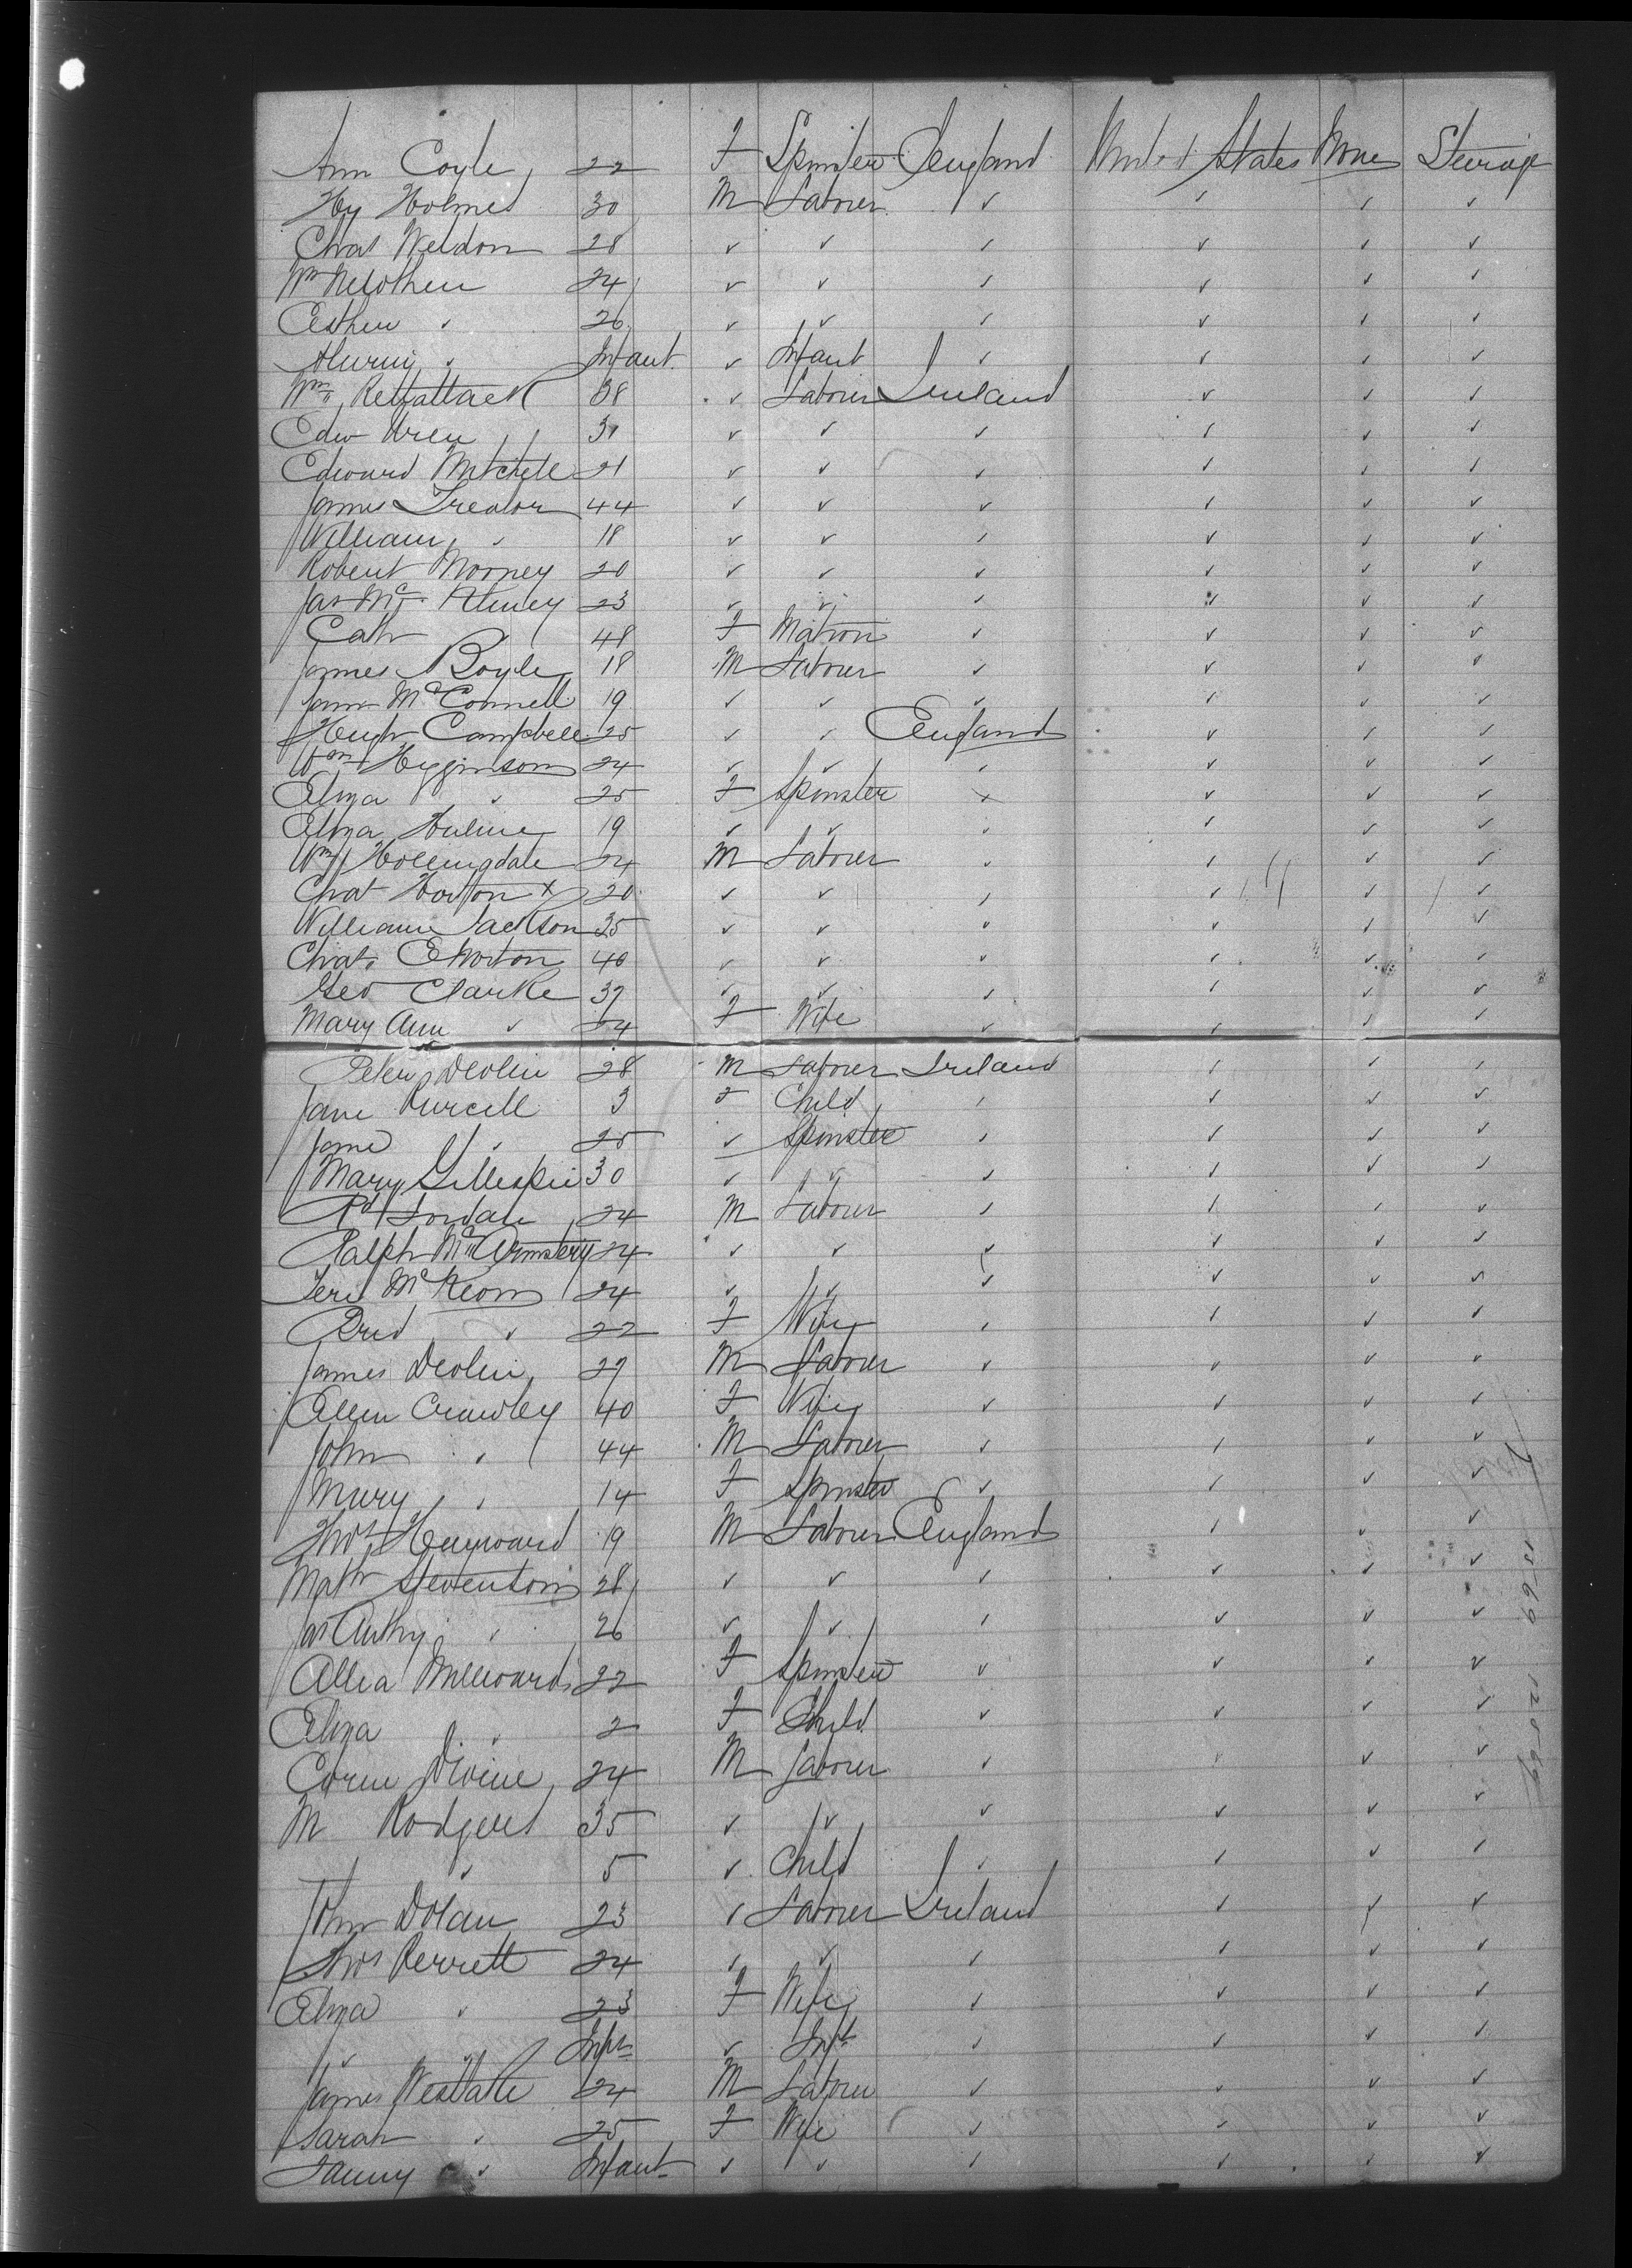 Ann Coyle 22 F Spinster England United States None Steerage
Hy Holmes 30 M Laborer ✓ ✓ ✓ ✓
Chas Weldon 28 ✓ ✓ ✓ ✓ ✓ ✓
Wm 24 ✓ ✓ ✓ ✓ ✓ ✓
Esther ✓ 26 ✓ ✓ ✓ ✓ ✓ ✓
✓ Infant ✓ Infant ✓ ✓ ✓ ✓
Wm Rettallack 38 ✓ Laborer Ireland ✓ ✓ ✓
Edw Wren 31 ✓ ✓ ✓ ✓ ✓ ✓
Edward Mitchell 21 ✓ ✓ ✓ ✓ ✓ ✓
James Treanor 44 ✓ ✓ ✓ ✓ ✓ ✓
William ✓ 18 ✓ ✓ ✓ ✓ ✓ ✓
Robert Mooney 20 ✓ ✓ ✓ ✓ ✓ ✓
Jas Mc 23 ✓ ✓ ✓ ✓ ✓ ✓
Cath ✓ 48 F Matron ✓ ✓ ✓ ✓
James Boyle 18 M Laborer ✓ ✓ ✓ ✓
James McConnell 19 ✓ ✓ ✓ ✓ ✓ ✓
Hugh Campbell 25 ✓ ✓ England ✓ ✓ ✓
Wm Higginson 24 ✓ ✓ ✓ ✓ ✓ ✓
Eliza ✓ 25 F Spinster ✓ ✓ ✓ ✓
Eliza Hulme 19 ✓ ✓ ✓ ✓ ✓ ✓
Wm Hollingdale 24 M Laborer ✓ ✓ ✓ ✓
Chas Horton x 20 ✓ ✓ ✓ ✓ ✓ ✓
William Jackson 35 ✓ ✓ ✓ ✓ ✓ ✓
Chas E Norton 40 ✓ ✓ ✓ ✓ ✓ ✓
Geo Clarke 37 ✓ ✓ ✓ ✓ ✓ ✓
Mary Ann ✓ 24 F Wife ✓ ✓ ✓ ✓
Peter Devlin 28 M Laborer Ireland ✓ ✓ ✓
Jane Purcell 3 F Child ✓ ✓ ✓ ✓
Jane ✓ 25 ✓ Spinster ✓ ✓ ✓ ✓
Mary Gillespie 30 ✓ ✓ ✓ ✓ ✓ ✓
Rd Jordan 24 M Laborer ✓ ✓ ✓ ✓
Ralph 24 ✓ ✓ ✓ ✓ ✓ ✓
McKeon 24 ✓ ✓ ✓ ✓ ✓ ✓
Brid ✓ 22 F Wife ✓ ✓ ✓ ✓
James Devlin 27 M Laborer ✓ ✓ ✓ ✓
Ellen Crawley 40 F Wife ✓ ✓ ✓ ✓
John ✓ 44 M Laborer ✓ ✓ ✓ ✓
Mary ✓ 14 F Spinster ✓ ✓ ✓ ✓
Thos Heyward 19 M Laborer England ✓ ✓ ✓
Matth Steventon 28 ✓ ✓ ✓ ✓ ✓ ✓
Jas Anthy ✓ 26 ✓ ✓ ✓ ✓ ✓ ✓
Millward 22 F Spinster ✓ ✓ ✓ ✓
Eliza ✓ 2 F Child ✓ ✓ ✓ ✓
Divine 24 M Laborer ✓ ✓ ✓ ✓
M Rodgers 35 ✓ ✓ ✓ ✓ ✓ ✓
✓ 5 ✓ Child ✓ ✓ ✓ ✓
John Dolan 23 ✓ Laborer Ireland ✓ ✓ ✓
Thos Perrett 24 ✓ ✓ ✓ ✓ ✓ ✓
Eliza ✓ 23 F Wife ✓ ✓ ✓ ✓
✓ ✓ Inft ✓ Inft ✓ ✓ ✓ ✓
James Westlake 24 M Laborer ✓ ✓ ✓ ✓
Sarah ✓ 25 F Wife ✓ ✓ ✓ ✓
Fanny ✓ Infant ✓ ✓ ✓ ✓ ✓ ✓